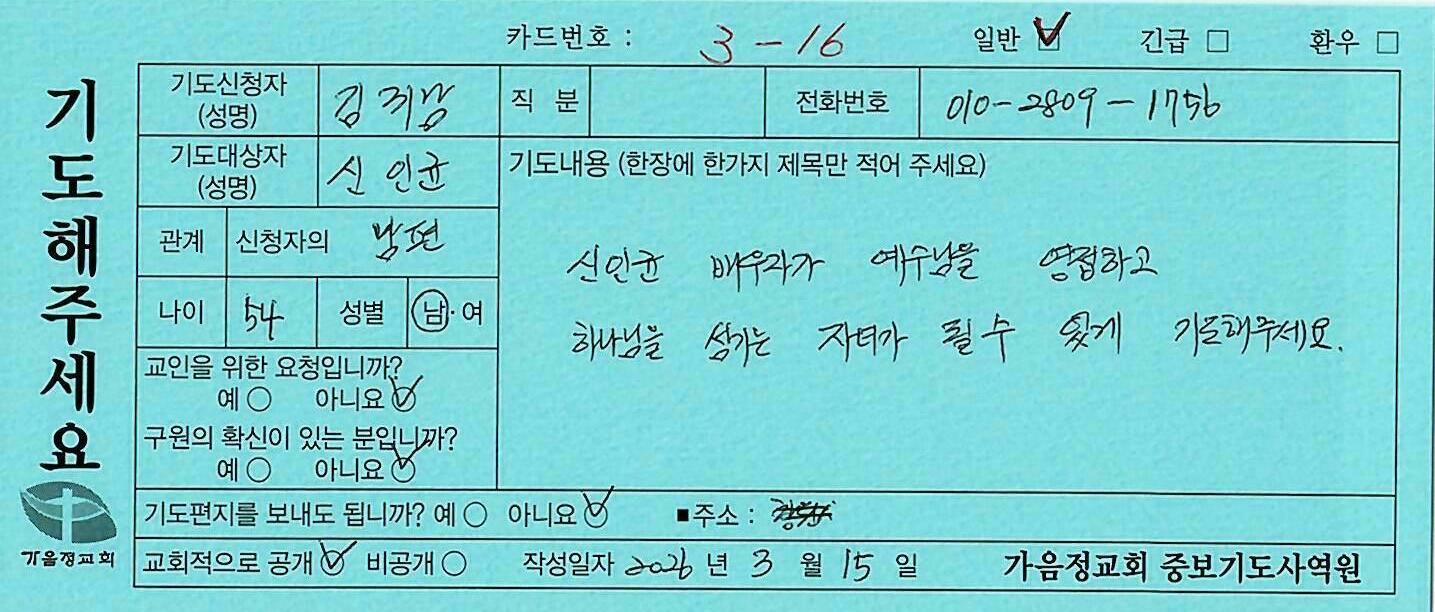 카드번호 : 3-16 일반 ☑ 긴급 □ 환우 □
기도해주세요
기도신청자 (성명) 김지남 직 분 전화번호 010-2809-1756
기도대상자 (성명) 신인균
관계 신청자의 남편
나이 54 성별 남·여
교인을 위한 요청입니까?
예 ○ 아니요 ○
구원의 확신이 있는 분입니까?
예 ○ 아니요 ○
기도내용 (한장에 한가지 제목만 적어 주세요)
신인균 배우자가 예수님을 영접하고
하나님을 섬기는 자녀가 될 수 있게 기도해주세요.
기도편지를 보내도 됩니까? 예 ○ 아니요 ○ ■주소 :
교회적으로 공개 ○ 비공개 ○ 작성일자 2026 년 3 월 15 일 가음정교회 중보기도사역원
가음정교회